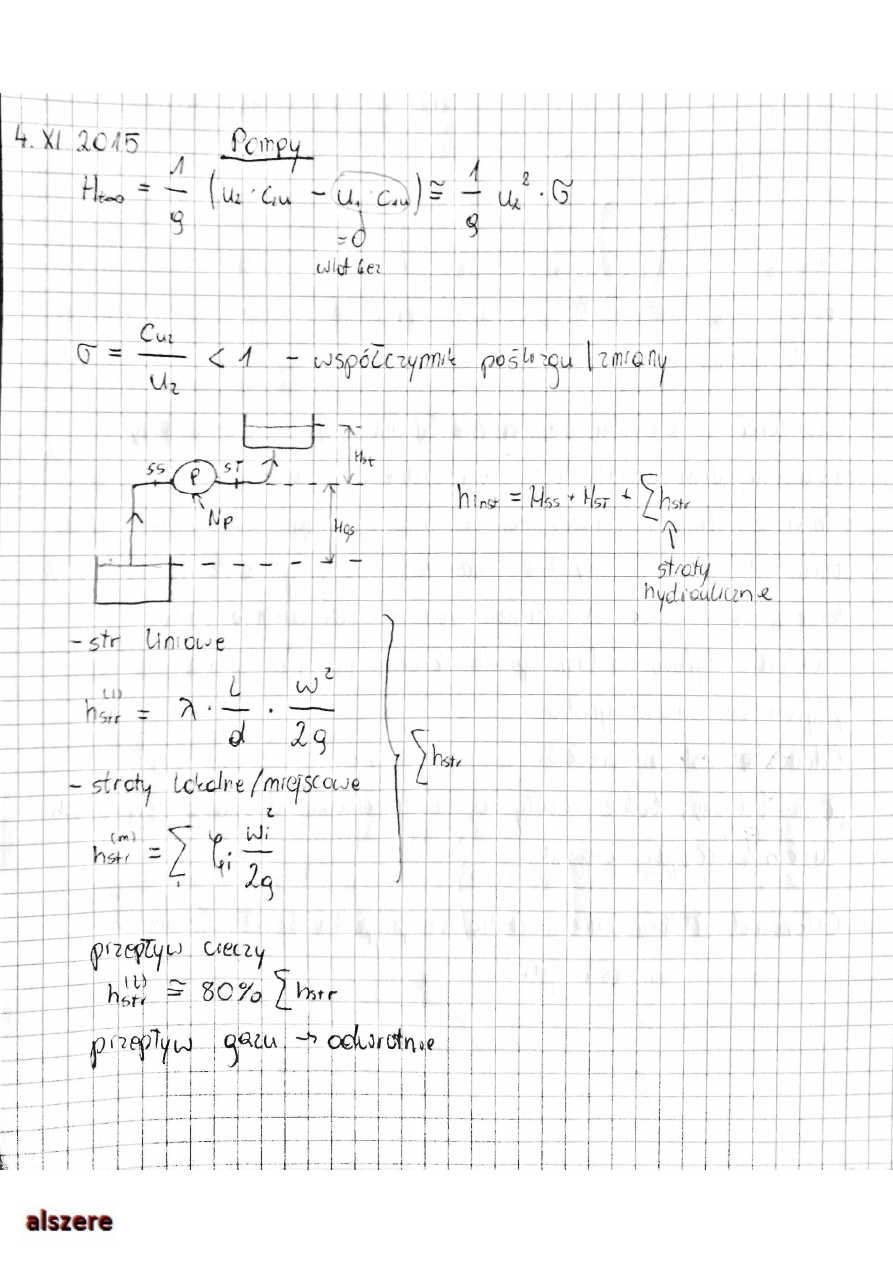 4. XI 2015 Pompy
Ht∞ = 1/g (u₂ · c₂u - u₁ · c₁u) ≅ 1/g u₂² · σ
=0
wlot bez
σ = Cu₂/u₂ < 1 - współczynnik poślizgu / zmiany
Hst
SS P ST
Np
Hgs
hinst = Hss + HST + ∑hstr
straty
hydrauliczne
- str liniowe
hstr⁽ˡ⁾ = λ · L/d · w²/2g
∑hstr
- straty lokalne/miejscowe
hstr⁽ᵐ⁾ = ∑i ξi wi²/2g
przepływ cieczy
hstr⁽ˡ⁾ ≅ 80% ∑hstr
przepływ gazu → odwrotnie
alszere